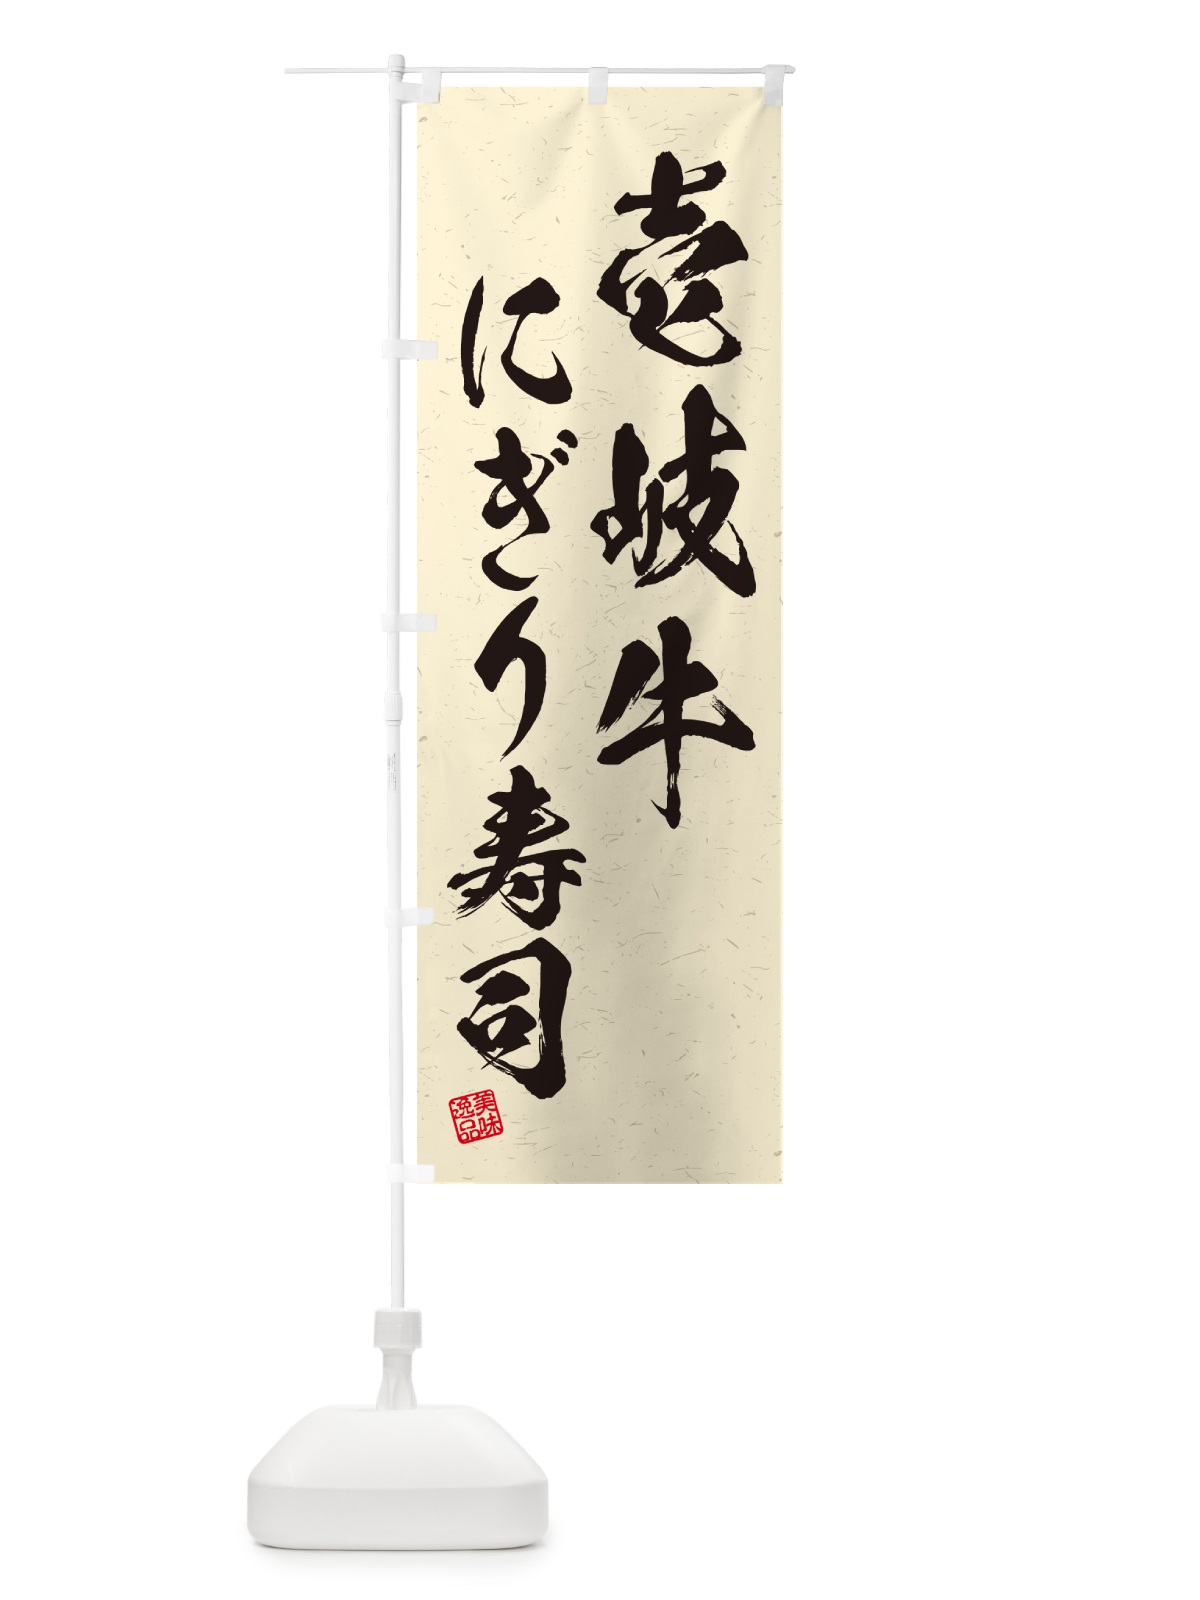 壱岐牛
にぎり寿司
美味
逸品